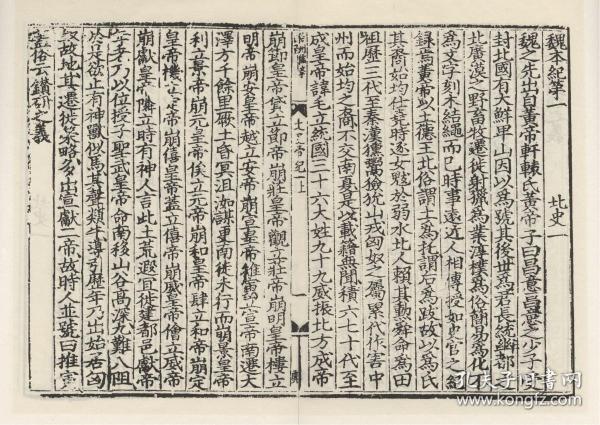 魏本紀第一 北史一
魏之先出自黃帝軒轅氏黃帝子曰昌意昌意之少子受
封北國有大鮮卑山因以爲號其後世爲君長統幽都之
北廣漠之野畜牧遷徙射獵爲業淳樸爲俗簡易爲化不
爲文字刻木結繩而已時事遠近人相傳授如史官之紀
録焉黃帝以土德王北俗謂土爲托謂后爲跋故以爲氏
其裔始均仕堯時逐女魃於弱水北人賴其勳舜命爲田
祖歷三代至秦漢獯鬻獫狁山戎匈奴之屬累代作害中
州而始均之裔不交南夏是以載籍無聞積六七十代至
成皇帝諱毛立統國三十六大姓九十九威振北方成帝
崩節皇帝貸立節帝崩莊皇帝觀立莊帝崩明皇帝樓立
明帝崩安皇帝越立安帝崩宣皇帝推寅立宣帝南遷大
澤方千餘里厥土昏冥沮洳謀更南徙未行而崩景皇帝
利立景帝崩元皇帝俟立元帝崩和皇帝肆立和帝崩定
皇帝機立定帝崩僖皇帝蓋立僖帝崩威皇帝儈立威帝
崩獻皇帝隣立時有神人言此土荒遐宜徙建都邑獻帝
年老乃以位授子聖武皇帝命南移山谷高深九難八阻
於是欲止有神獸似馬其聲類牛導引歷年乃出始居匈
奴故地其遷徙策略多出宣獻二帝故時人並號曰推寅
蓋俗云鑽研之義
孔夫子旧书网